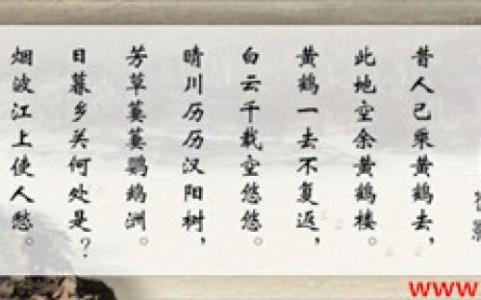 昔人已乘黄鹤去,
此地空余黄鹤楼。
黄鹤一去不复返,
白云千载空悠悠。
晴川历历汉阳树,
芳草萋萋鹦鹉洲。
日暮乡关何处是?
烟波江上使人愁。
www.